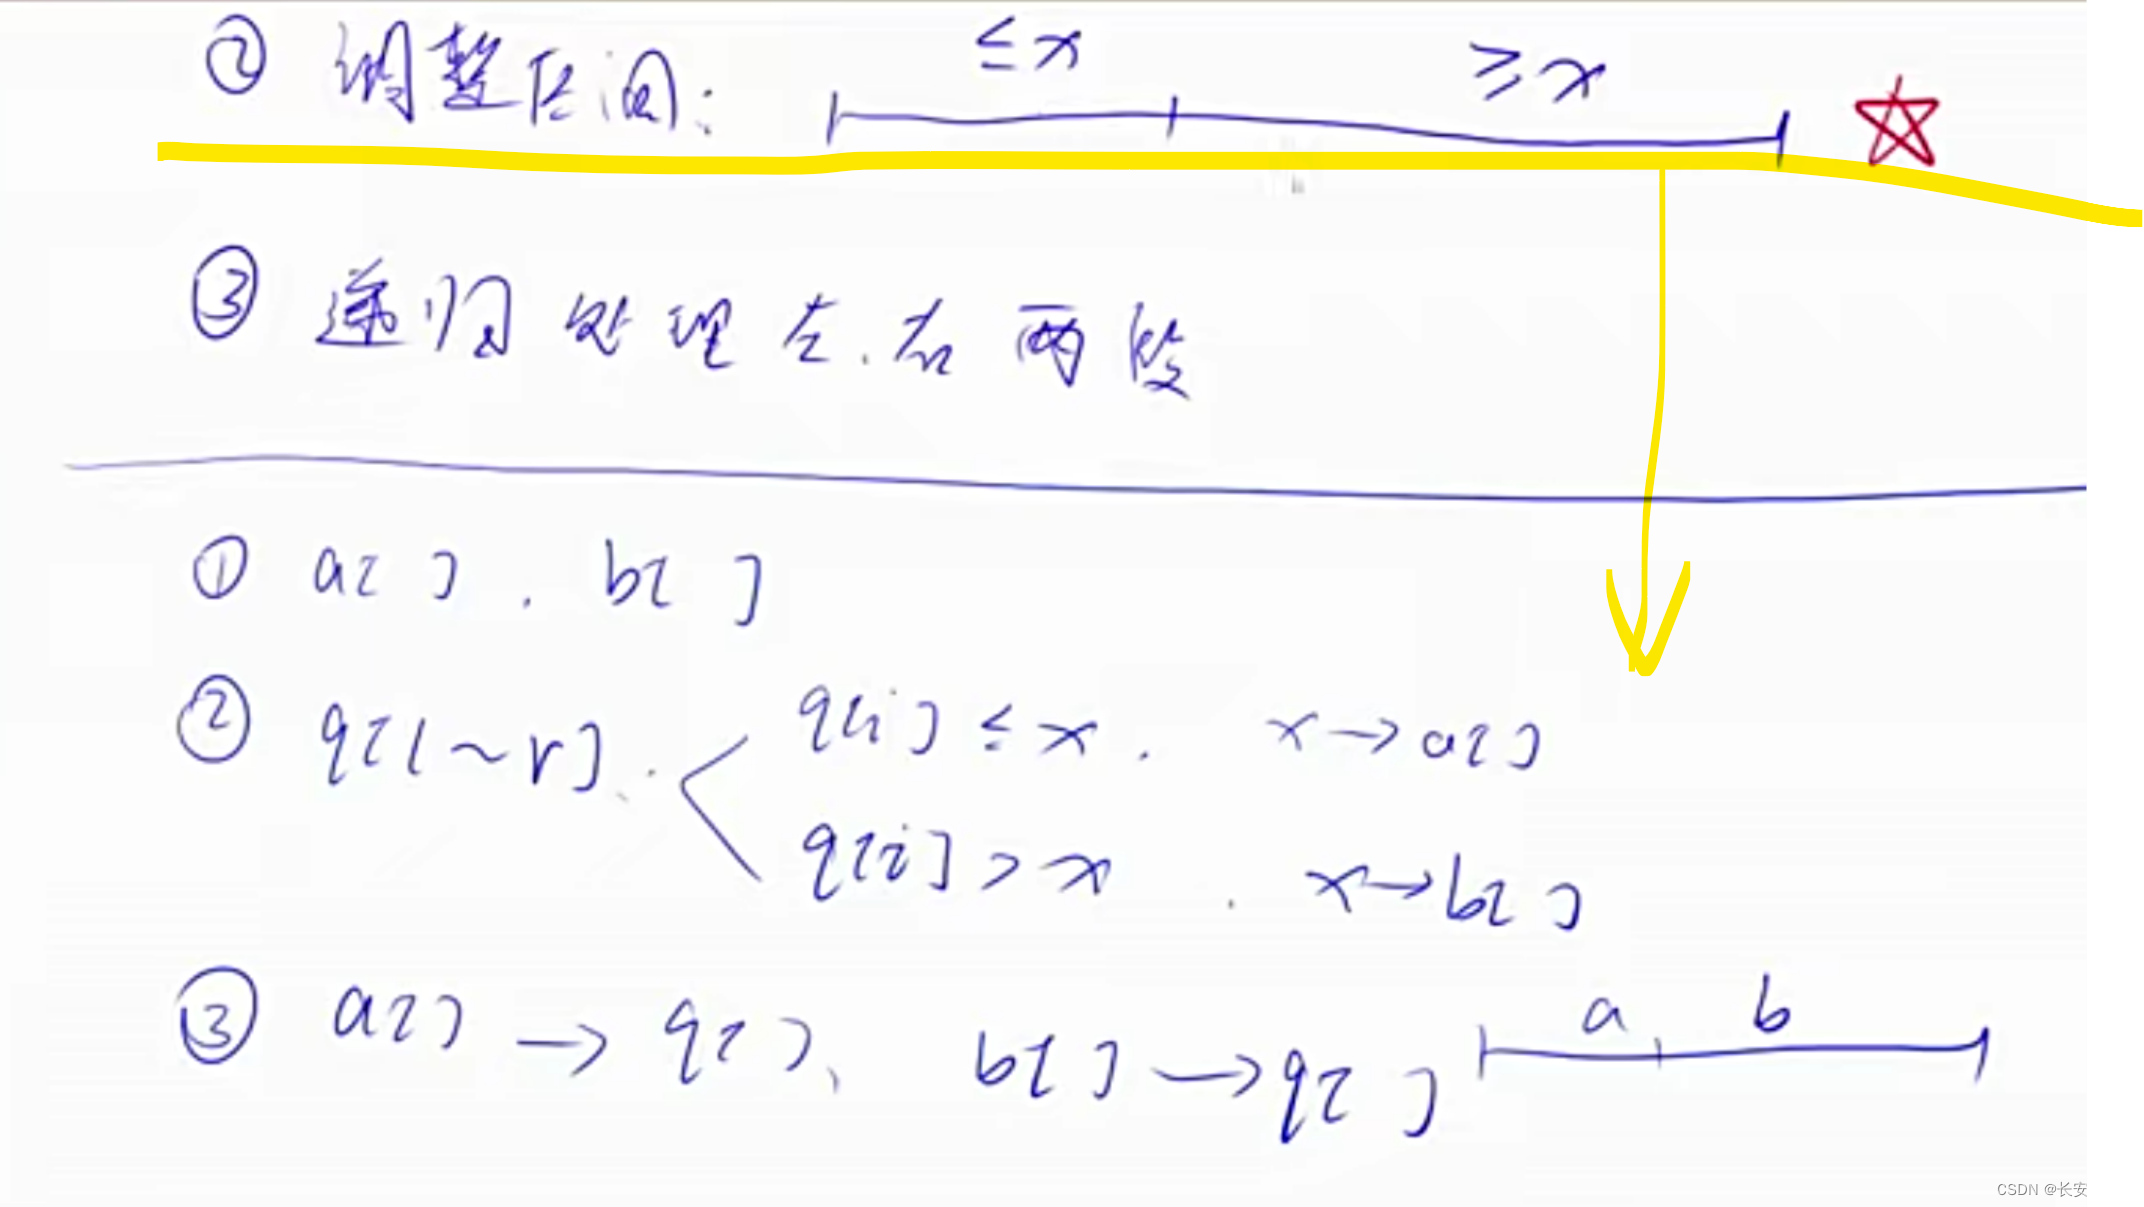 ② 调整区间: ≤x ≥x
③ 递归处理左、右两段
① a[ ], b[ ]
② q[l~r].
q[i] ≤ x. x→a[ ]
q[i] > x. x→b[ ]
③ a[ ] → q[ ]、 b[ ] → q[ ] a b
CSDN @长安